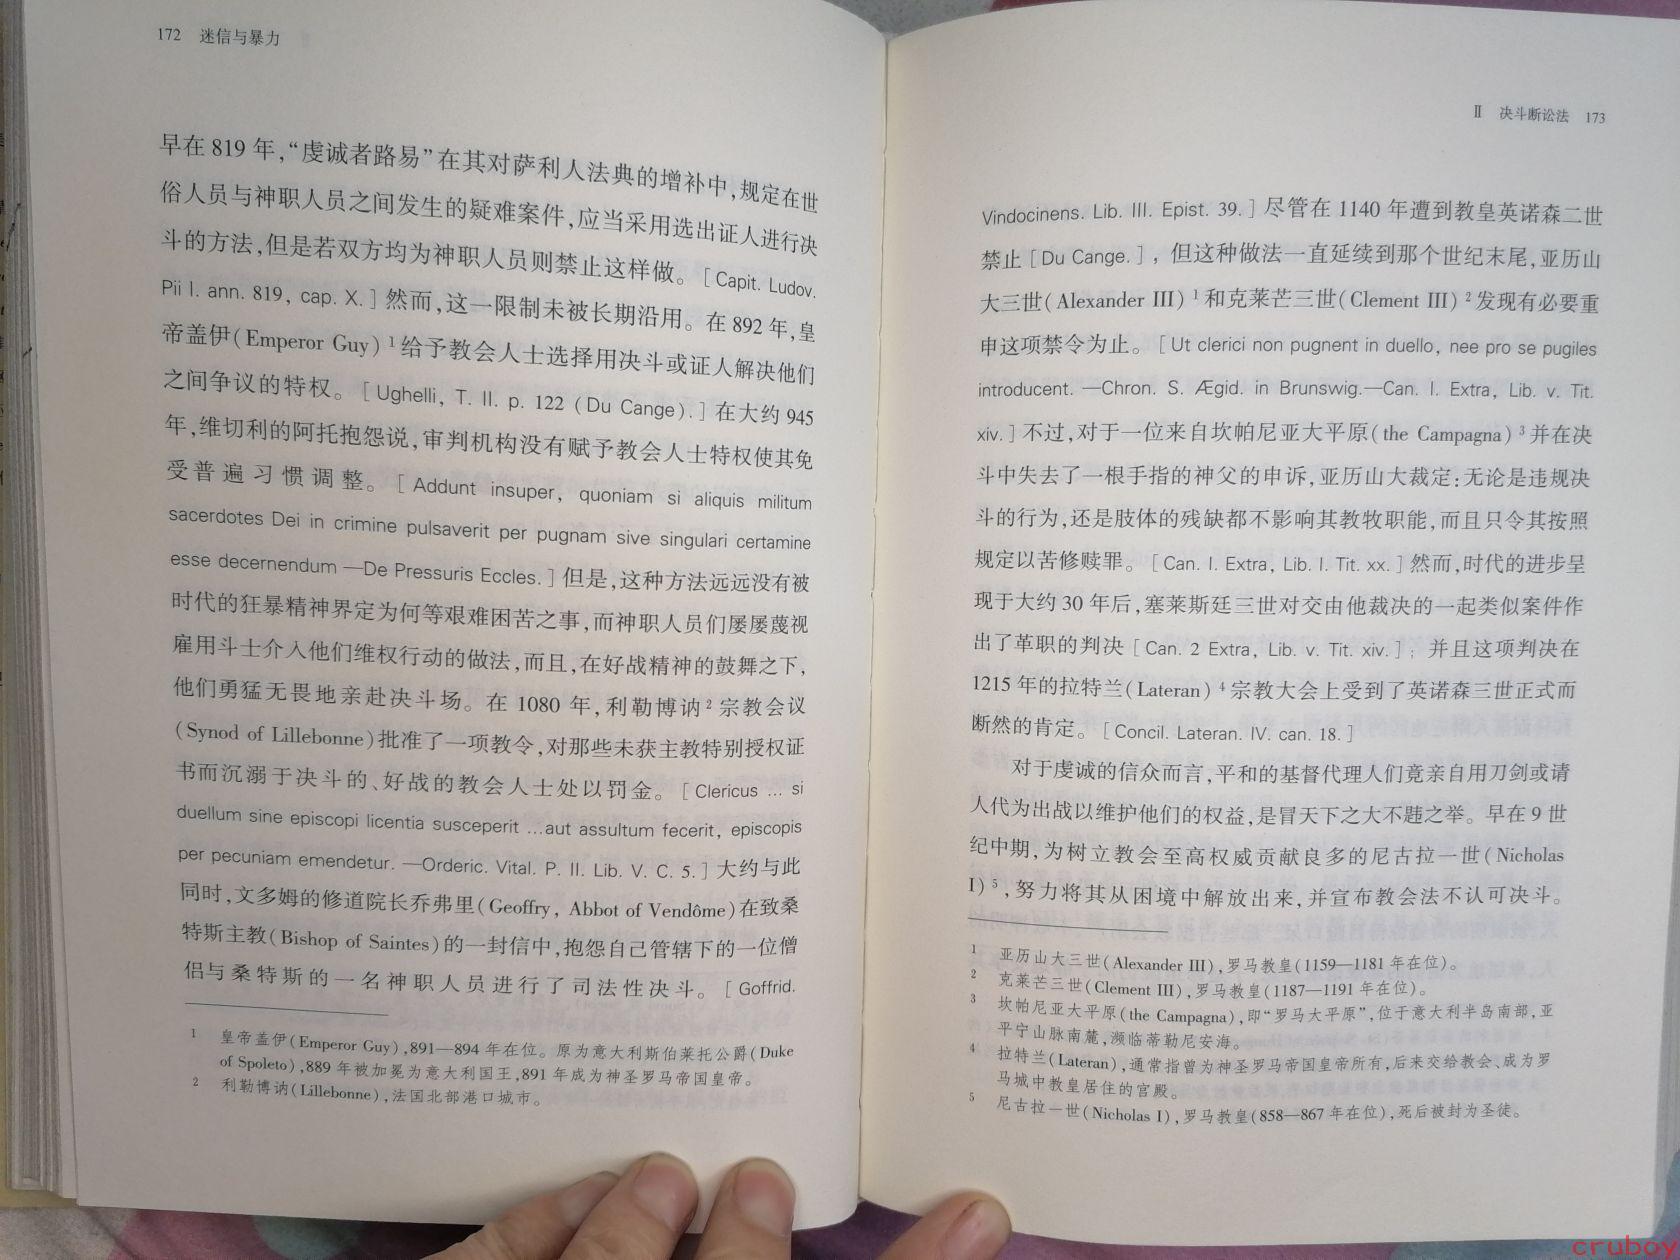 172 迷信与暴力
早在 819 年，“虔诚者路易”在其对萨利人法典的增补中，规定在世
俗人员与神职人员之间发生的疑难案件，应当采用选出证人进行决
斗的方法，但是若双方均为神职人员则禁止这样做。［Capit. Ludov.
Pii I. ann. 819, cap. X.］然而，这一限制未被长期沿用。在 892 年，皇
帝盖伊(Emperor Guy)1给予教会人士选择用决斗或证人解决他们
之间争议的特权。［Ughelli, T. II. p. 122 (Du Cange).］在大约 945
年，维切利的阿托抱怨说，审判机构没有赋予教会人士特权使其免
受普遍习惯调整。［Addunt insuper, quoniam si aliquis militum
sacerdotes Dei in crimine pulsaverit per pugnam sive singulari certamine
esse decernendum —De Pressuris Eccles.］但是，这种方法远远没有被
时代的狂暴精神界定为何等艰难困苦之事，而神职人员们屡屡蔑视
雇用斗士介入他们维权行动的做法，而且，在好战精神的鼓舞之下，
他们勇猛无畏地亲赴决斗场。在 1080 年，利勒博讷2宗教会议
(Synod of Lillebonne)批准了一项教令，对那些未获主教特别授权证
书而沉溺于决斗的、好战的教会人士处以罚金。［Clericus ... si
duellum sine episcopi licentia susceperit ...aut assultum fecerit, episcopis
per pecuniam emendetur. —Orderic. Vital. P. II. Lib. V. C. 5.］大约与此
同时，文多姆的修道院长乔弗里(Geoffry, Abbot of Vendôme)在致桑
特斯主教(Bishop of Saintes)的一封信中，抱怨自己管辖下的一位僧
侣与桑特斯的一名神职人员进行了司法性决斗。［Goffrid.
1 皇帝盖伊(Emperor Guy)，891—894 年在位。原为意大利斯伯莱托公爵(Duke
of Spoleto)，889 年被加冕为意大利国王，891 年成为神圣罗马帝国皇帝。
2 利勒博讷(Lillebonne)，法国北部港口城市。
II 决斗断讼法 173
Vindocinens. Lib. III. Epist. 39.］尽管在 1140 年遭到教皇英诺森二世
禁止［Du Cange.］，但这种做法一直延续到那个世纪末尾，亚历山
大三世(Alexander III)1和克莱芒三世(Clement III)2发现有必要重
申这项禁令为止。［Ut clerici non pugnent in duello, nee pro se pugiles
introducent. —Chron. S. Ægid. in Brunswig.—Can. I. Extra, Lib. v. Tit.
xiv.］不过，对于一位来自坎帕尼亚大平原(the Campagna)3并在决
斗中失去了一根手指的神父的申诉，亚历山大裁定：无论是违规决
斗的行为，还是肢体的残缺都不影响其教牧职能，而且只令其按照
规定以苦修赎罪。［Can. I. Extra, Lib. I. Tit. xx.］然而，时代的进步呈
现于大约 30 年后，塞莱斯廷三世对交由他裁决的一起类似案件作
出了革职的判决［Can. 2 Extra, Lib. v. Tit. xiv.］；并且这项判决在
1215 年的拉特兰(Lateran)4宗教大会上受到了英诺森三世正式而
断然的肯定。［Concil. Lateran. IV. can. 18.］
对于虔诚的信众而言，平和的基督代理人们竟亲自用刀剑或请
人代为出战以维护他们的权益，是冒天下之大不韪之举。早在 9 世
纪中期，为树立教会至高权威贡献良多的尼古拉一世(Nicholas
I)5，努力将其从困境中解放出来，并宣布教会法不认可决斗。
1 亚历山大三世(Alexander III)，罗马教皇(1159—1181 年在位)。
2 克莱芒三世(Clement III)，罗马教皇(1187—1191 年在位)。
3 坎帕尼亚大平原(the Campagna)，即“罗马大平原”，位于意大利半岛南部，亚
平宁山脉南麓，濒临蒂勒尼安海。
4 拉特兰(Lateran)，通常指曾为神圣罗马帝国皇帝所有，后来交给教会、成为罗
马城中教皇居住的宫殿。
5 尼古拉一世(Nicholas I)，罗马教皇(858—867 年在位)，死后被封为圣徒。
cruboy